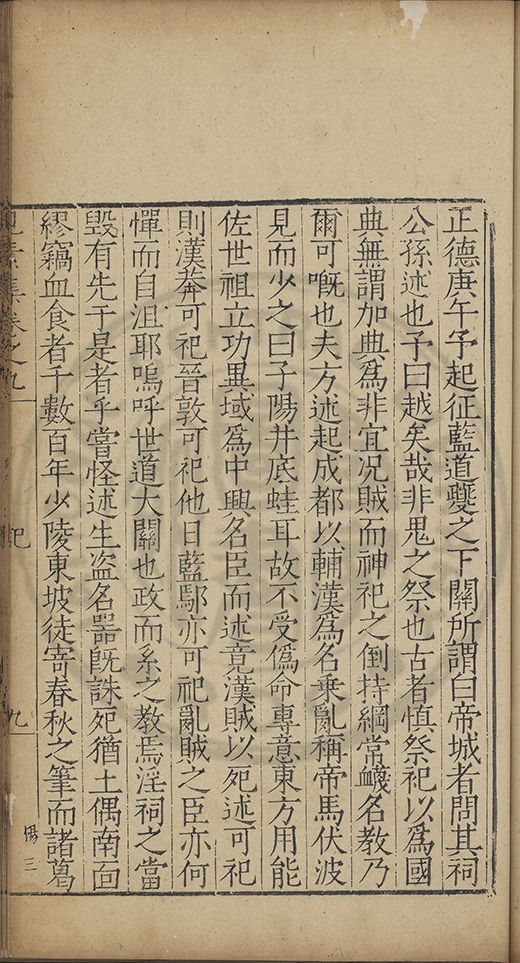 正德庚午予起征藍道夔之下關所謂白帝城者問其祠
公孫述也予曰越矣哉非鬼之祭也古者慎祭祀以爲國
典無謂加典爲非宜况賊而神祀之倒持綱常衊名教乃
爾可嘅也夫方述起成都以輔漢爲名乗亂稱帝馬伏波
見而少之曰子陽井底蛙耳故不受僞命專意東方用能
佐世祖立功異域爲中興名臣而述竟漢賊以死述可祀
則漢莽可祀晉敦可祀他日藍鄢亦可祀亂賊之臣亦何
憚而自沮耶嗚呼世道大關也政而系之教焉淫祠之當
毀有先于是者乎嘗怪述生盗名噐旣誅死猶土偶南面
繆竊血食者千數百年少陵東坡徒寄春秋之筆而諸葛
見素集卷之九
祀
九
三